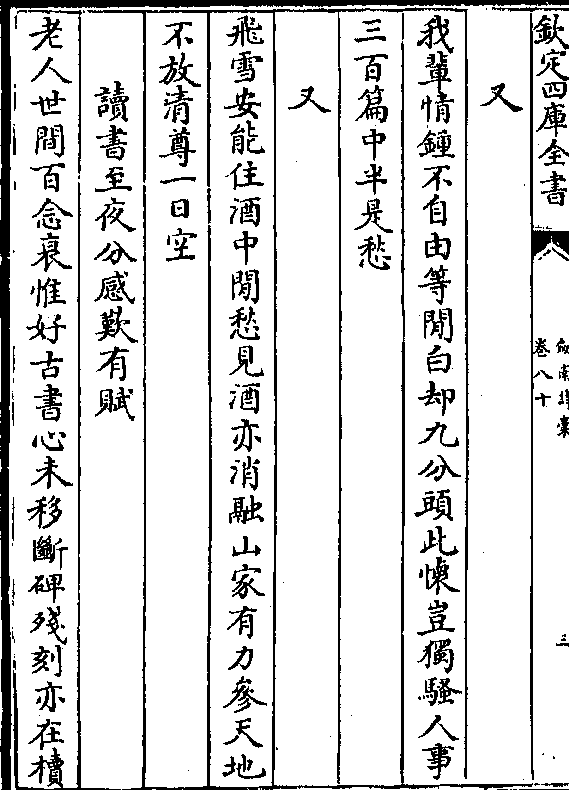 欽定四庫全書
劔南詩稾
卷八十
三
又
我輩情鍾不自由等閒白却九分頭此懐豈獨騷人事
三百篇中半是愁
又
飛雪安能住酒中閒愁見酒亦消融山家有力參天地
不放清尊一日空
讀書至夜分感歎有賦
老人世間百念衰惟好古書心未移斷碑殘刻亦在櫝